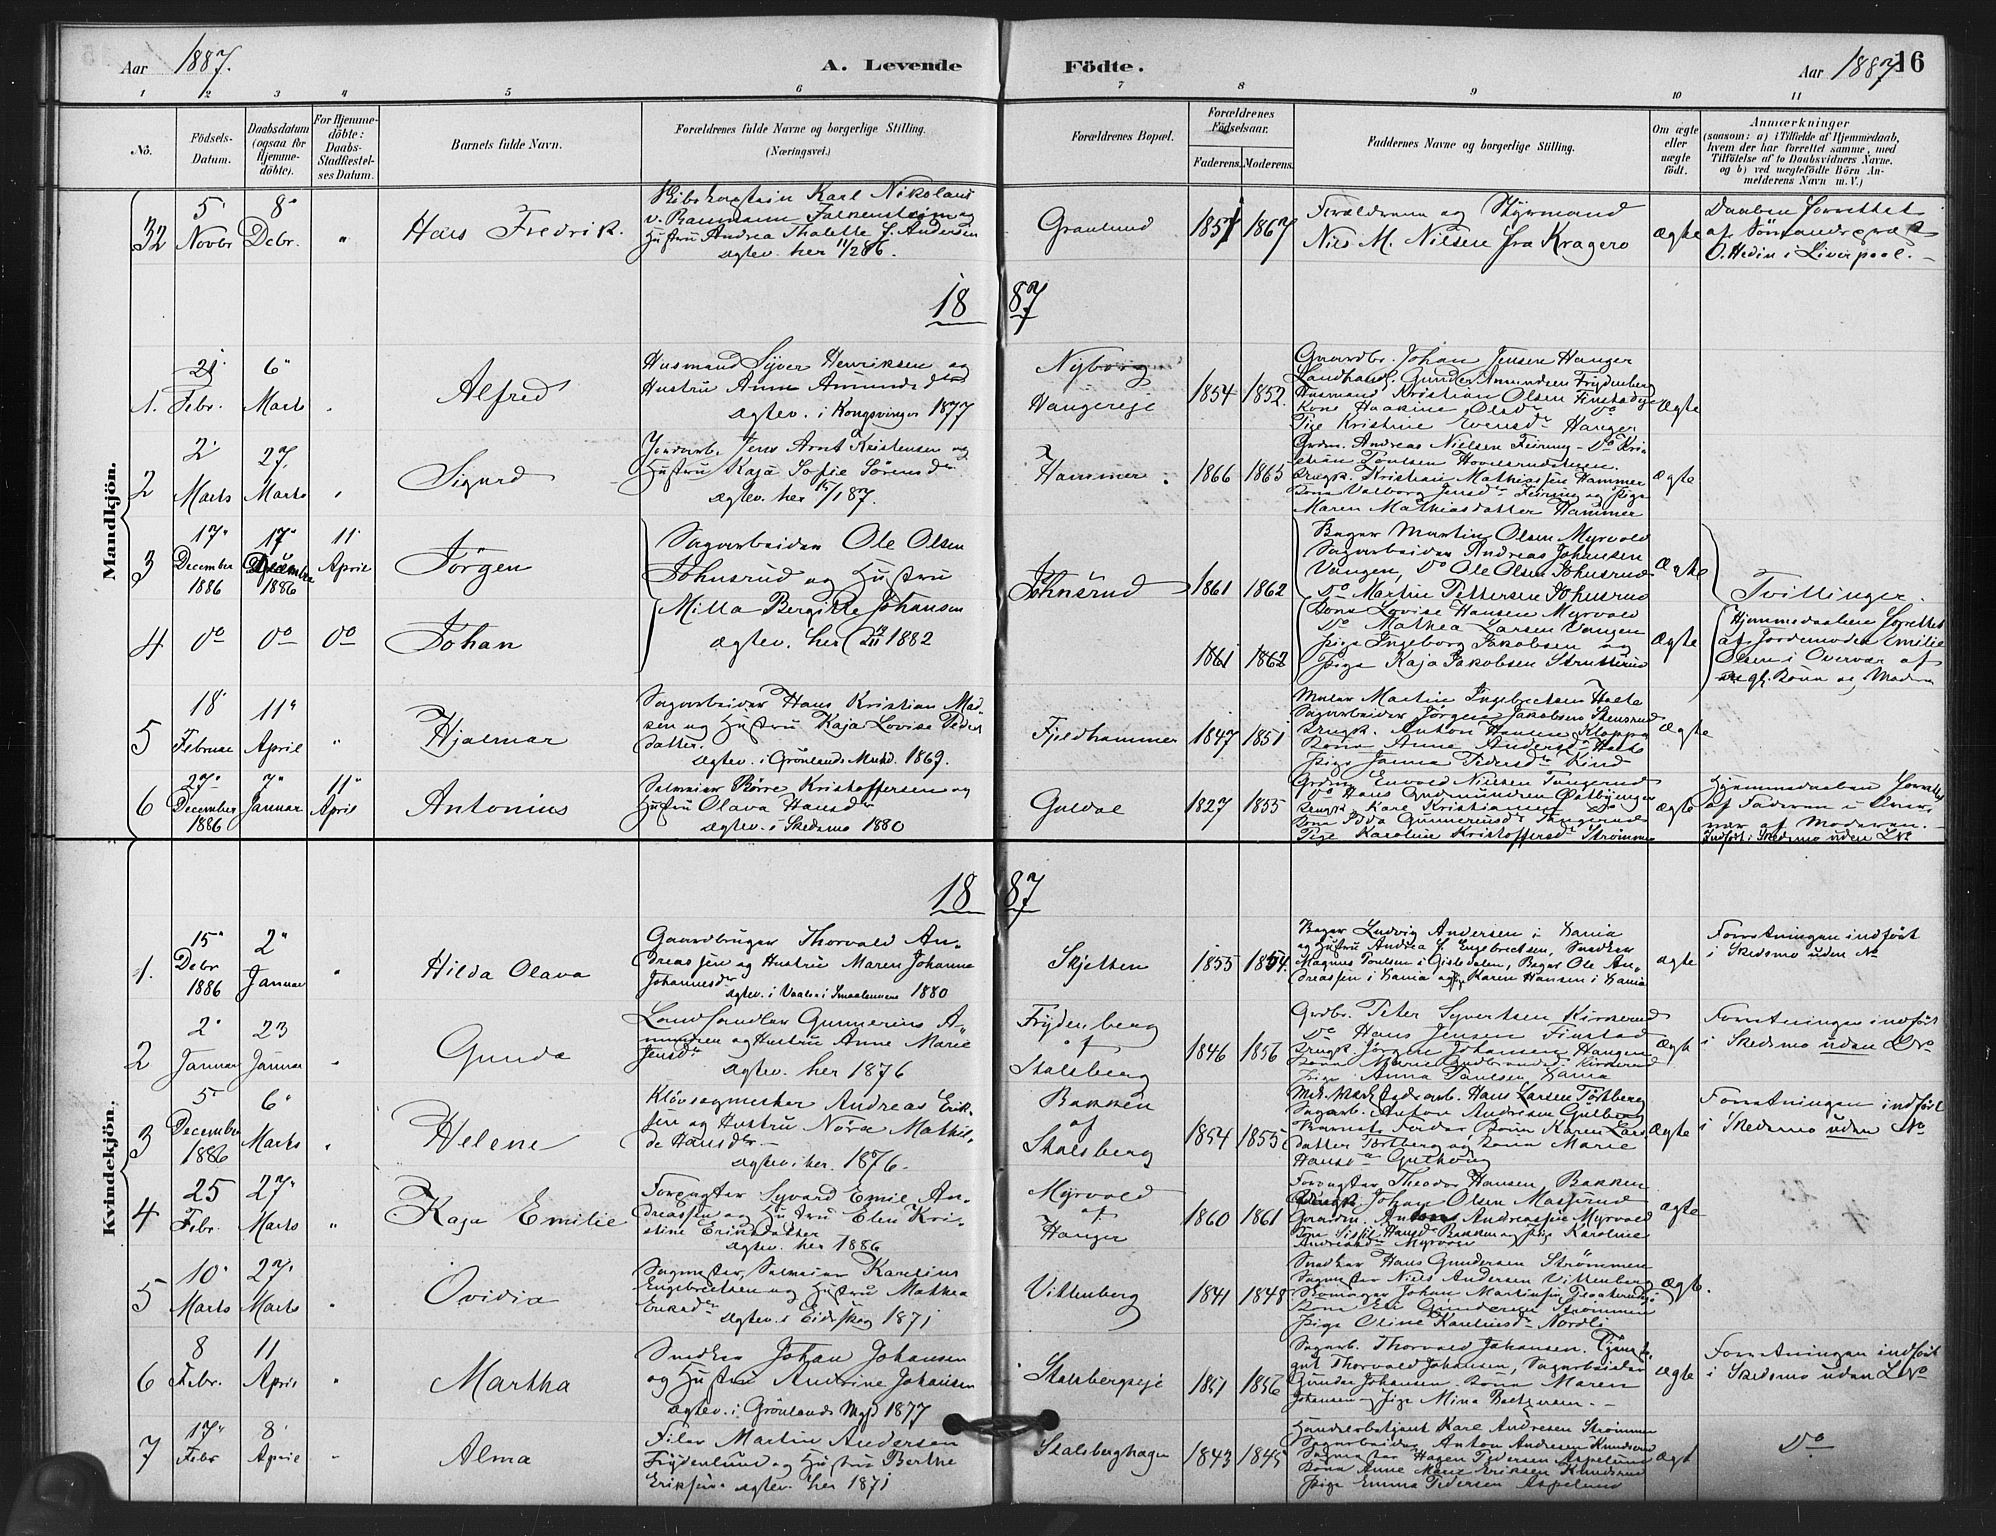 Aar 1887. A. Levende Födte. Aar 1887 16
1 2 3 4 5 6 7 8 9 10 11
No.
Födsels-
Datum.
Daabsdatum
(ogsaa for
Hjemme-
döbte).
For Hjemme-
döbte:
Daabs-
Stadfæstel-
ses Datum.
Barnets fulde Navn.
Forældrenes fulde Navne og borgerlige Stilling.
(Næringsvei.)
Forældrenes Bopæl.
Forældrenes
Födselsaar.
Faderens. Moderens.
Faddernes Navne og borgerlige Stilling.
Om ægte
eller
uægte
födt.
Anmærkninger
(saasom: a) i Tilfælde af Hjemmedaab,
hvem der har forrettet samme, med
Tilföielse af to Daabsvidners Navne,
og b) ved uægtefödte Börn An-
melderens Navn m. V.)
Mandkjön.
32
5
Novbr
8
Debr.
"
Hans Fredrik.
Karl Nikolaus
v. Baumann Falkenstein og
Hustru Andrea Thalette f. Andersen
ægtev. her 11/2 86.
Granlund
1857
1867
Forældrene og Styrmand
Niels M. Nielsen fra Kragerø
ægte
Daaben forrettet
af Sömandspræst
O. Hedin i Liverpool.
1887
1.
21
Febr.
6
Marts
Alfred
Husmand Syver Henriksen og
Hustru Anne Amundsd
ægtev. i Kongsvinger 1877
Nyborg
Haugereje
1854
1852.
Gaardbr. Johan Jensen Hauger
Landhandl. Gunder Amundsen Frydenberg
Husmand Kristian Olsen Finstadeje
Kone Haakine Olsdr Do
Pige Kristine Evensdr Hauger
ægte
2
2
Marts
27.
Marts
Sigurd
Jordarb. Jens Arnt Kristensen og
Hustru Kaja Sofie Sörensdr
ægtev. her 15/1 87.
Hammer.
1866
1865
Grdm. Andreas Nielsen Feiring - Do Kri-
stian Poulsen
Kristian Mathiassen Hammer
Kone Valborg Jensdr Feiring og Pige
Maren Mathiasdatter Hammer
ægte
3
17
December
1886
17
December
1886
11
April
Jörgen
Sagarbeider Ole Olsen
Johnsrud og Hustru
Milla Bergitte Johansen
ægtev. her 1882
Johnsrud
1861
1862
Bager Martin Olsen Myrvold
Sagarbeider Andreas Johansen
Vangen, Do Ole Olsen Johnsrud
Do Martin Pettersen Johnsrud
Kone Lovise Hansen Myrvold
Do Mathea Larsen Vangen
Pige Ingeborg Jakobsen og
Pige Kaja Jakobsen
ægte
Tvillinger.
4
Do
Do
Do
Johan
1861
1862
ægte
Hjemmedaaben forrettet
af Jordemoder Emilie
Olsen i Overvær af
Kone og Moder
5
18
Februar
11
April
"
Hjalmar
Sagarbeider Hans Kristian Mad-
sen og Hustru Kaja Lovise Peders
datter.
ægtev. i Grönlands Mhd. 1869.
Fjeldhammer
1847
1851
Martin Ingebretsen Holte
Sagarbeider Jörgen Jakobsen Stensrud
Anton Hansen Kloppa
Kone Anne Andersdr Holte
Pige Janna Pedersdr Rind
ægte
6
27
December
1886
7
Januar
11
April
Antonius
Salmaker Börre Kristoffersen og
Hustru Olava Hansdr
ægtev. i Skedsmo 1880
Guldal
1827
1855
Grdm. Envold Nielsen Tangerud
Do Hans Gudmundsen Östbyenger
Karl Kristiansen Do
Kone Idda Gunneriusdr Tangerud
Pige Karoline Kristoffersdr Strömmen
ægte
Hjemmedaaben forrettet
af Faderen i Over-
vær af Moderen.
Indfört i Skedsmo uden No
1887
Kvindekjön.
1.
15
Debr
1886
2
Januar
"
Hilda Olava
Gaardbruger Thorvald An-
dreassen og Hustru Maren Johanne
Johannesdr
ægtev. i Vaaler i Smaalenene 1880
Skjetten
1855
1854.
Bager Ludvig Andersen i Kania
og Hustru Andrea f. Engebretsen, Snedker
Magnus Poulsen i Gisledalen, Bager Ole An-
dreassen i Kania og Karen Hansen i Kania
ægte
Forretningen indfört
i Skedsmo uden No
2
2
Januar
23
Januar
"
Gunda
Landhandler Gunnerius A-
mundsen og Hustru Anne Marie
Jensdr
ægtev. her 1876
Frydenberg
af
Stalsberg
1846
1856
Grdbr. Peter Syvertsen Kirkerud
Do Hans Jensen Finstad
Jörgen Johansen Haugen
Kone Marie Gudbrandsdr Kirkerud
Pige Anna Paulsen Kania
ægte
Forretningen indfört
i Skedsmo uden No
3
5
December
1886
6
Marts
"
Helene
Klövsagmester Andreas Erik-
sen og Hustru Nora Mathil-
de Hansdr
ægtev. her 1876.
Bakken
af
Stalsberg
1854
1855
Hans Larsen Törtberg
Sagarb. Anton Andersen Gulberg
Barnets Fader Kone Karen Lars
datter Törtberg og Kone Marie
Hansd
ægte
Forretningen indfört
i Skedsmo uden No
4
25
Febr.
27
Marts
"
Kaja Emilie
Forpagter Syvard Emil An-
dreassen og Hustru Elen Kri-
stine Eriksdatter
ægtev. her 1886
Myrvold
af
Hauger
1860
1861
Forpagter Theodor Hansen Bakken
Johan Olsen
Gaardm. Anton Andreassen Myrvold
Kone Sissil Hansdr Bakken og Pige Karoline
Andreasdr Myrvold
ægte
5
10
Marts
27
Marts
"
Ovidia
Sagmester, Salmaker Karelius
Engebretsen og Hustru Mathea
Eriksdr
ægtev. i Eidskog 1871
Vittenberg
1841
1848
Snedker Hans Gundersen Strömmen
Sagmester Niels Andersen Vittenberg
Skomager Johan Martinsen
Kone Eli Gundersen Strömmen
Pige Oline Kareliusdr Nordli
ægte.
6
8
Febr.
11
April
"
Martha
Snedker Johan Johansen
og Hustru Andrine Johansen
ægtev. i Grönlands Mgd 1877
Stalsbergeje
1851
1856
Sagarb. Thorvald Johansen.
gut Thorvald Johansen, Sagarbeider
Gunder Johansen. Kone Maren
Johansen og Pige Mina Beltzersen. -
ægte
Forretningen indfört
i Skedsmo uden No
7
17
Febr
8
April
"
Alma
Filer Martin Andersen
Frydenlund og Hustru Berthe
Eriksen. ægtev. her 1871
Stalsberghagen
1843
1845
Handelsbetjent Karl Andresen Strömmen
Sagarbeider Anton Andersen Knudsrud
Sagmester Hagen Pedersen Aspelund
Kone Anne Marie Eriksen Knudsrud
Pige Emma Pedersen Aspelund
ægte
Do